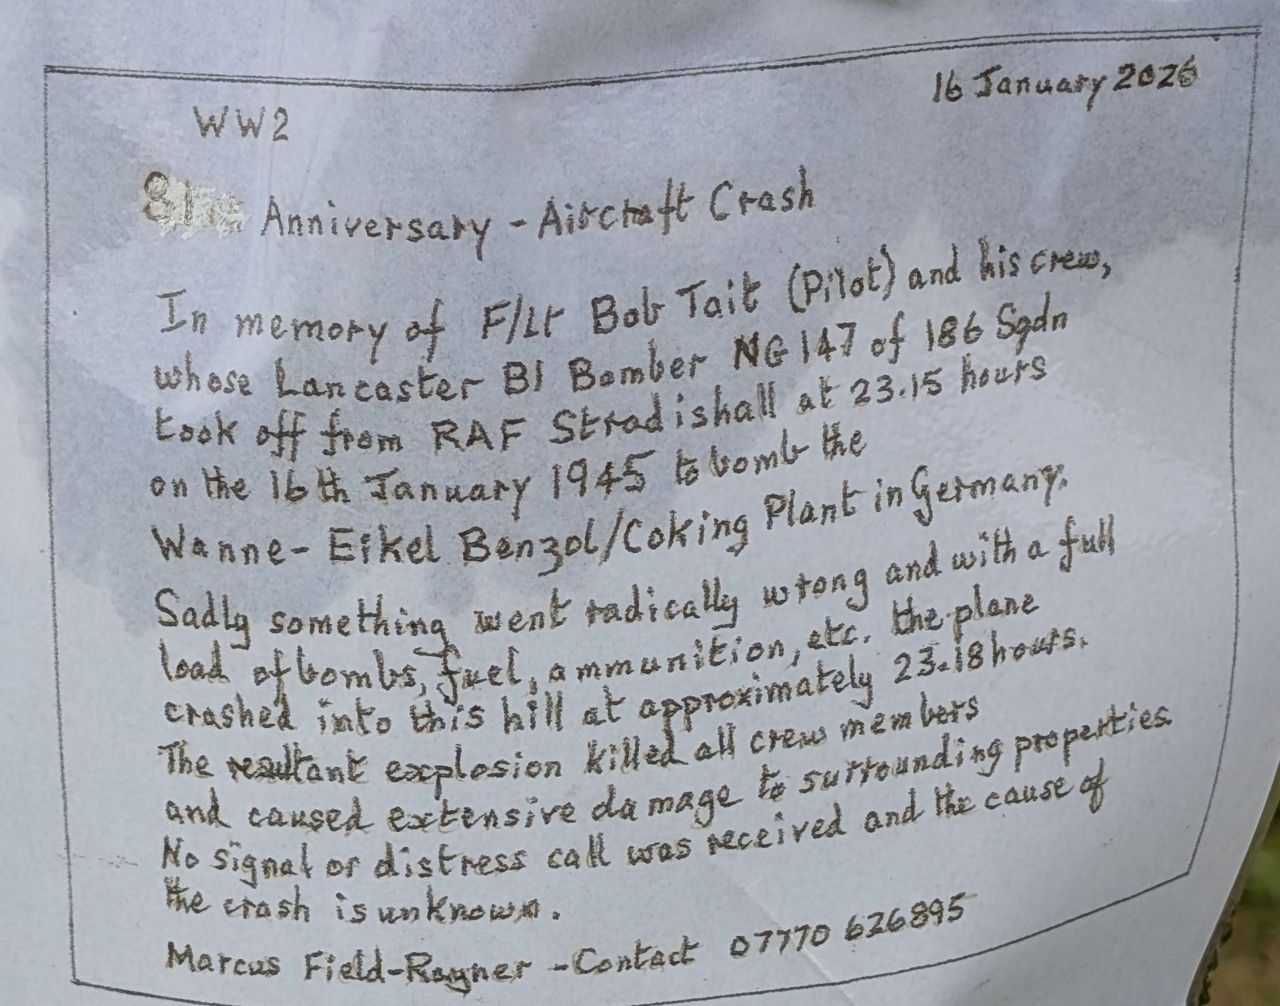 16 January 2026
WW2
81st Anniversary - Aircraft Crash
In memory of F/Lt Bob Tait (Pilot) and his crew,
whose Lancaster B1 Bomber NG147 of 186 Sqdn
took off from RAF Stradishall at 23.15 hours
on the 16th January 1945 to bomb the
Wanne-Eikel Benzol/Coking Plant in Germany.
Sadly something went radically wrong and with a full
load of bombs, fuel, ammunition, etc. the plane
crashed into this hill at approximately 23.18 hours.
The resultant explosion killed all crew members
and caused extensive damage to surrounding properties.
No signal or distress call was received and the cause of
the crash is unknown.
Marcus Field-Rayner - Contact 07770 626895